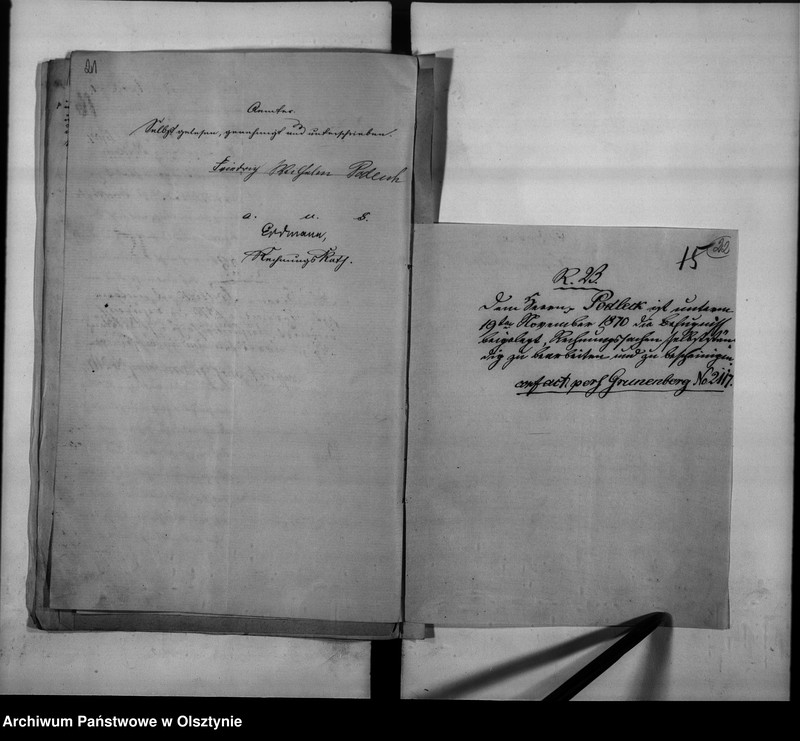 21
Aemter.
Selbst gelesen, genehmigt und unterschrieben.
Friedrich Wilhelm Podlech
a. u. s.
Erdmann,
Rechnungs Rath.
15 22
R. B.
Dem Herrn Podleck ist unterm
19ten November 1870 die Befugniß
beigelegt, Rechnungssachen selbststän
dig zu bearbeiten und zu bescheinigen
conf act. pers Grunenberg No 2117.
Archiwum Państwowe w Olsztynie